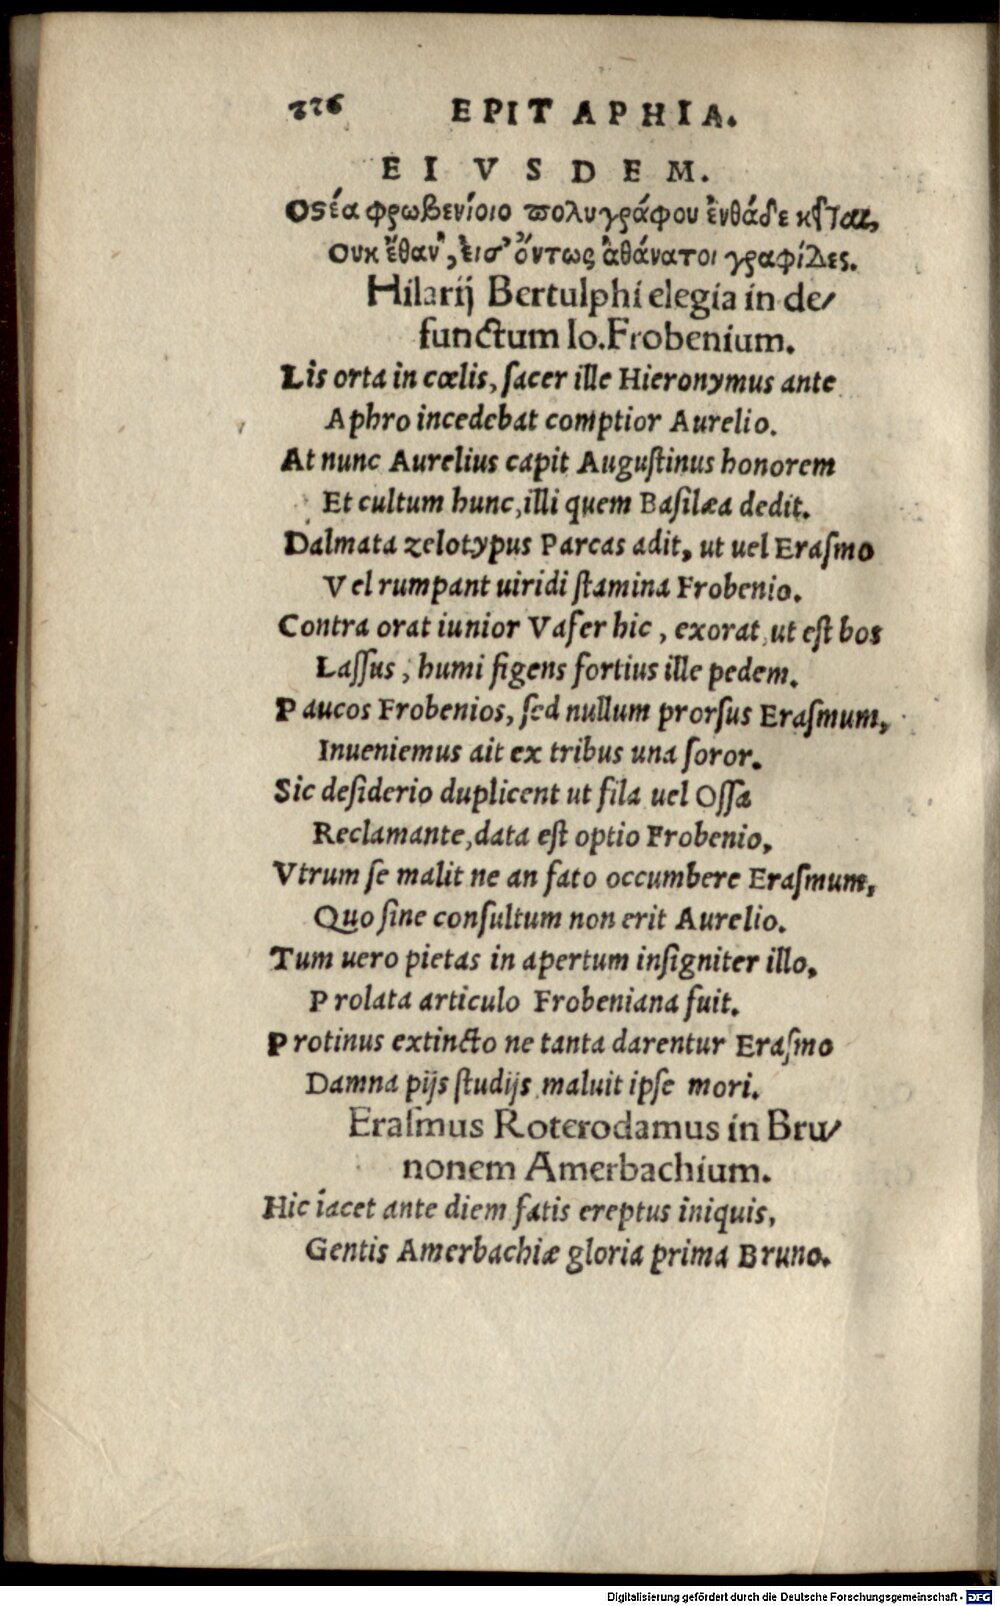 226 EPITAPHIA.
EIVSDEM.
Οςέα φρωβενίοιο πολυγράφου ἐνθάδε κεῖται,
Ουκ ἔθαν᾽, εἰσ᾽ ὄντως ἀθάνατοι γραφίδες.
Hilarij Bertulphi elegia in de/
functum Io. Frobenium.
Lis orta in cœlis, ſacer ille Hieronymus ante
Aphro incedebat comptior Aurelio.
At nunc Aurelius capit Auguſtinus honorem
Et cultum hunc, illi quem Baſilæa dedit.
Dalmata zelotypus Parcas adit, ut uel Eraſmo
Vel rumpant uiridi ſtamina Frobenio.
Contra orat iunior Vafer hic, exorat, ut eſt bos
Laſſus, humi figens fortius ille pedem.
Paucos Frobenios, ſed nullum prorſus Eraſmum,
Inueniemus ait ex tribus una ſoror.
Sic deſiderio duplicent ut fila uel Oſſa
Reclamante, data eſt optio Frobenio,
Vtrum ſe malit ne an fato occumbere Eraſmum,
Quo ſine conſultum non erit Aurelio.
Tum uero pietas in apertum inſigniter illo,
Prolata articulo Frobeniana fuit.
Protinus extincto ne tanta darentur Eraſmo
Damna pijs ſtudijs, maluit ipſe mori.
Eraſmus Roterodamus in Bru/
nonem Amerbachium.
Hic iacet ante diem fatis ereptus iniquis,
Gentis Amerbachiæ gloria prima Bruno.
Digitalisierung gefördert durch die Deutsche Forschungsgemeinschaft - DFG